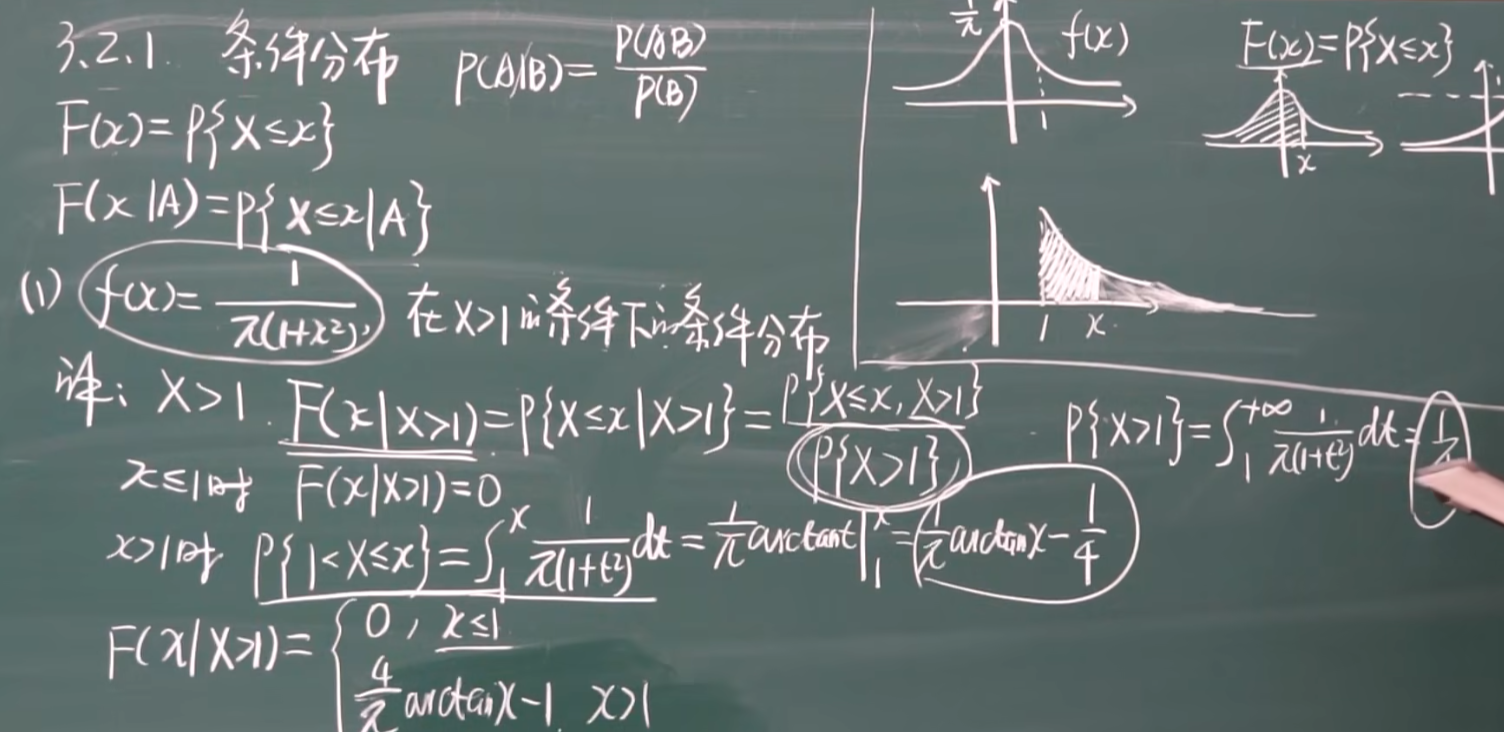 3.2.1. 条件分布 P(A|B)=P(AB)/P(B)
F(x)=P{X≤x}
F(x|A)=P{X≤x|A}
(1) f(x)=1/π(1+x²), 在X>1的条件下的条件分布
解: X>1. F(x|X>1)=P{X≤x|X>1}=P{X≤x, X>1}/P{X>1}
x≤1时 F(x|X>1)=0
x>1时 P{1<X≤x}=∫₁ˣ 1/π(1+t²) dt=1/π arctant|₁ˣ=1/π arctanx-1/4
F(x|X>1)={0, x≤1
4/π arctanx-1, x>1
1/π f(x)
1
F(x)=P{X≤x}
x
1 x
P{X>1}=∫₁^{+∞} 1/π(1+t²) dt=